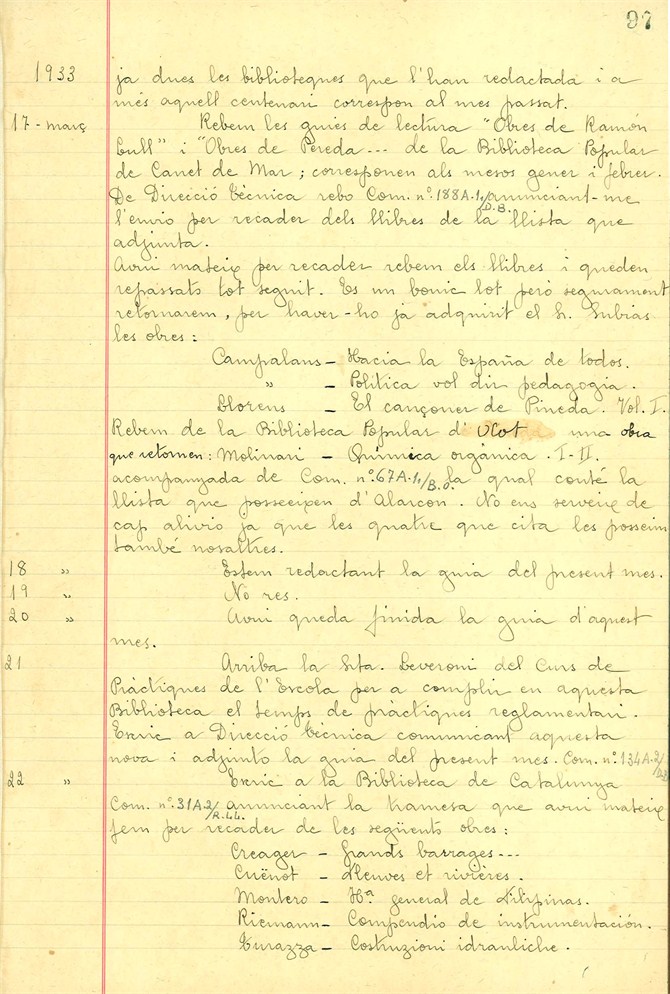 97
1933 ja dues les biblioteques que l'han redactada i a
més aquell centenari correspon al mes passat.
17 - març Rebem les guies de lectura "Obres de Ramón
Lull" i "Obres de Pereda... de la Biblioteca Popular
de Canet de Mar; corresponen als mesos gener i febrer.
De Direcció Tècnica rebo Com. nº. 188A.1/D.B. anunciant-me
l'envio per recader dels llibres de la llista que
adjunta.
Avui mateix per recader rebem els llibres i queden
repassats tot seguit. Es un bonic lot però segurament
retornarem, per haver-ho ja adquirit el h. Subias
les obres:
Campalans - Hacia la España de todos.
" - Política vol dir pedagogia.
Llorens - El cançoner de Pineda. Vol. I.
Rebem de la Biblioteca Popular d'Olot una obra
que retornen: Molinari - Química orgànica. I-II.
acompanyada de Com. nº. 67A.1/B.O. la qual conté la
llista que posseeixen d'Alarcon. No ens serveix de
cap alivio ja que les quatre que cita les posseim
també nosaltres.
18 " Estem redactant la guia del present mes.
19 " No res.
20 " Avui queda finida la guia d'aquest
mes.
21 Arriba la Srta. Leveroni del Curs de
Pràctiques de l'Escola per a complir en aquesta
Biblioteca el temps de pràctiques reglamentari.
Escric a Direcció Tècnica comunicant aquesta
nova i adjunto la guia del present mes. Com. nº. 134A.2/
22 " Escric a la Biblioteca de Catalunya
Com. nº. 31A.2/R.44. anunciant la tramesa que avui mateix
fem per recader de les següents obres:
Creager - Grands barrages...
Cuënot - Fleuves et rivières.
Montero - Hª general de Filipinas.
Riemann - Compendio de instrumentación.
Turazza - Costruzioni idrauliche.